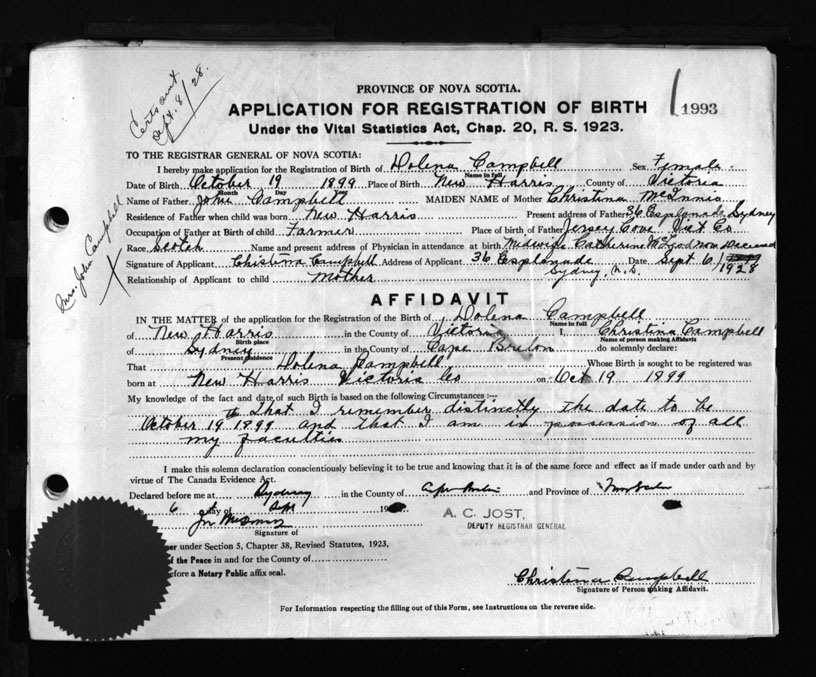 Certs out
Sept. 8/28.
PROVINCE OF NOVA SCOTIA.
1993
APPLICATION FOR REGISTRATION OF BIRTH
Under the Vital Statistics Act, Chap. 20, R. S. 1923.
TO THE REGISTRAR GENERAL OF NOVA SCOTIA:
I hereby make application for the Registration of Birth of Dolena Campbell Sex Female
Name in full
Date of Birth October 19 1899 Place of Birth New Harris County of Victoria
Month Day Year
Name of Father John Campbell MAIDEN NAME of Mother Christina McInnis
Residence of Father when child was born New Harris Present address of Father 36 Esplanade Sydney
Occupation of Father at Birth of child Farmer Place of birth of Father Jersey Cove Vict Co
Race Scotch Name and present address of Physician in attendance at birth Midwife Catherine McLeod now deceased
Signature of Applicant Christina Campbell Address of Applicant 36 Esplanade Date Sept 6/
Sydney, N.S. 1928
Relationship of Applicant to child Mother
Mrs. John Campbell
AFFIDAVIT
IN THE MATTER of the application for the Registration of the Birth of Dolena Campbell
Name in full
of New Harris in the County of Victoria I, Christina Campbell
Birth place Name of person making Affidavit
of Sydney in the County of Cape Breton do solemnly declare:
Present residence
That Dolena Campbell Whose Birth is sought to be registered was
born at New Harris Victoria Co on Oct 19 1899
My knowledge of the fact and date of such Birth is based on the following Circumstances:—
that I remember distinctly the date to be
October 19 1899 and that I am in possession of all
my faculties
I make this solemn declaration conscientiously believing it to be true and knowing that it is of the same force and effect as if made under oath and by
virtue of The Canada Evidence Act.
Declared before me at Sydney in the County of Cape Breton and Province of Nova Scotia
6 Sept 19
A. C. JOST,
DEPUTY REGISTRAR GENERAL
Signature of
under Section 5, Chapter 38, Revised Statutes, 1923,
of the Peace in and for the County of
before a Notary Public affix seal.
Christina Campbell
Signature of Person making Affidavit.
For Information respecting the filling out of this Form, see Instructions on the reverse side.